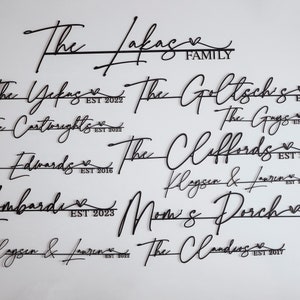 The Lakas
FAMILY
The Yekas
EST 2022
The Goltsch's
The Cartwrights
The Guys
Edwards
EST 2016
The Cliffords
EST
Klaysen & Laurin
EST
ombardi
EST 2023
Mom's Porch
Klaysen & Laurin
The Claudios
EST 2017